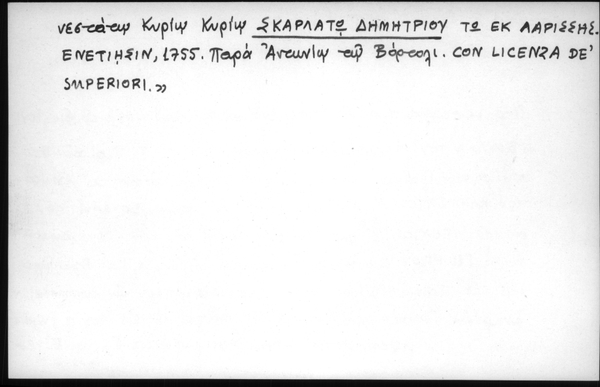 νεστάτῳ Κυρίῳ Κυρίῳ ΣΚΑΡΛΑΤῼ ΔΗΜΗΤΡΙΟΥ ΤΩ ΕΚ ΛΑΡΙΣΣΗΣ.
ΕΝΕΤΙῌΣΙΝ, 1755. Παρά Ἀντωνίῳ τῷ Βόρτολι. CON LICENZA DE'
SUPERIORI.»